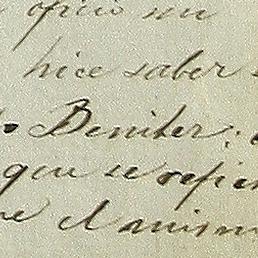 oficio un
hice saber
Beniter;
que se refie
el mism